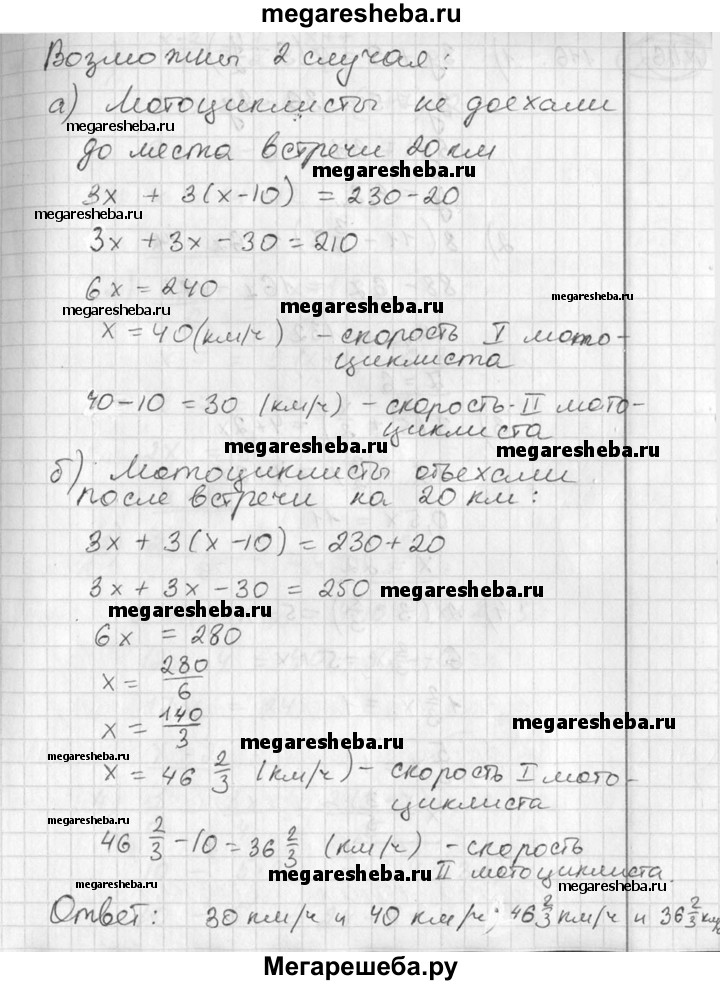 megaresheba.ru
Возможны 2 случая:
а) Мотоциклисты не доехали
megaresheba.ru
до места встречи 20 км
megaresheba.ru
3x + 3(x-10) = 230-20
megaresheba.ru
3x + 3x - 30 = 210
6x = 240
megaresheba.ru
megaresheba.ru
megaresheba.ru
x = 40 (км/ч) - скорость I мото-
циклиста
40-10 = 30 (км/ч) - скорость II мото-
циклиста
megaresheba.ru
б) Мотоциклисты отъехали
megaresheba.ru
после встречи на 20 км:
3x + 3(x-10) = 230+20
3x + 3x - 30 = 250
megaresheba.ru
megaresheba.ru
6x = 280
x = 280/6
x = 140/3
megaresheba.ru
megaresheba.ru
megaresheba.ru
x = 46 2/3 (км/ч) - скорость I мото-
циклиста
46 2/3 - 10 = 36 2/3 (км/ч) - скорость
megaresheba.ru
II мотоциклиста.
megaresheba.ru
megaresheba.ru
Ответ: 30 км/ч и 40 км/ч; 46 2/3 км/ч и 36 2/3 км/ч
Мегарешеба.ру